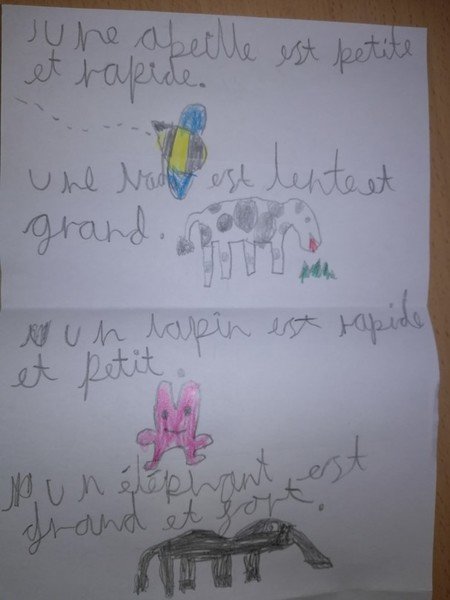 une apeille est petite
et rapide.
une est lente et
grand.
un lapin est rapide
et petit.
un éléphant est
grand et fort.